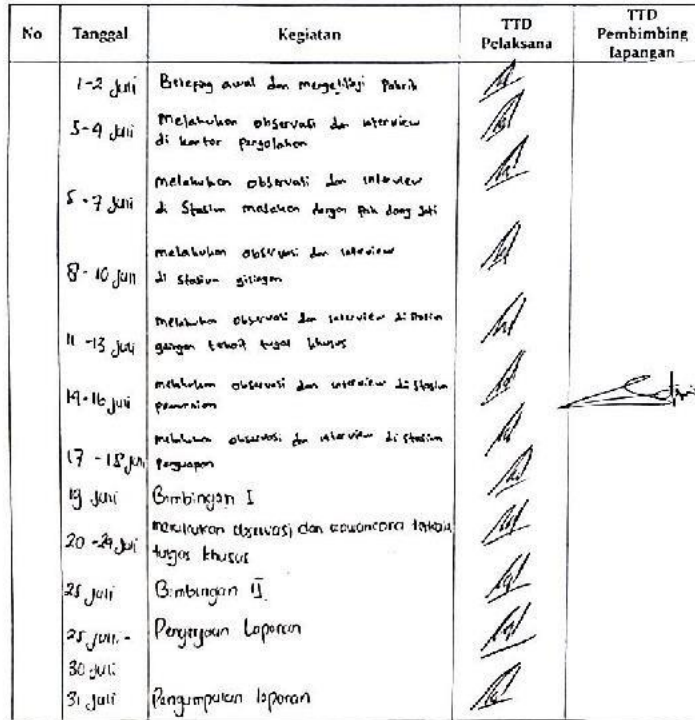 No Tanggal Kegiatan TTD Pelaksana TTD Pembimbing lapangan
1-2 Juli awal dan Pabrik
3-4 Juli Melakukan observasi dan interview
di kantor pengolahan
5-7 Juli melakukan observasi dan interview
di Stasiun masakan dengan Pak
8-10 Juli melakukan observasi dan interview
di Stasiun gilingan
11-13 Juli melakukan observasi dan interview di Stasiun
gilingan terkait tugas khusus
14-16 Juli melakukan observasi dan interview di Stasiun
pemurnian
17-18 Juli melakukan observasi dan interview di Stasiun
Penguapan
19 Juli Bimbingan I
20-24 Juli melakukan observasi dan wawancara terkait
tugas khusus
25 Juli Bimbingan II
25 Juli - Pengerjaan Laporan
30 Juli
31 Juli Pengumpulan laporan